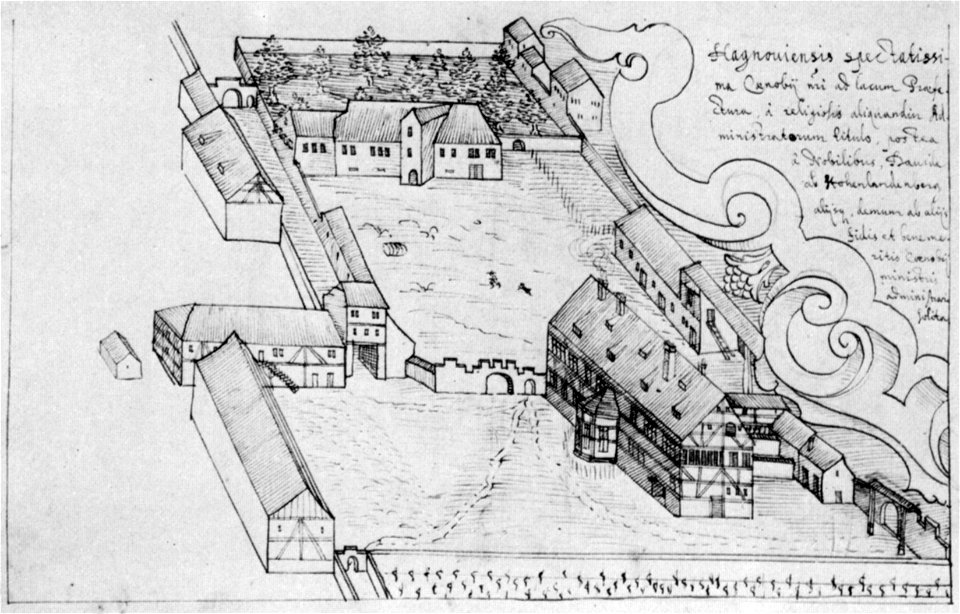 Hagnoviensis spectatissi-
ma Cænobij nri ad lacum Præfe-
ctura, à religiosis aliquandiu Ad-
ministratorum titulo, postea
à Nobilibus, Davide
ab Hohenlandenberg
alijsq, demum ab alijs
fidis et beneme-
ritis Cœnobij
ministris
administrari
solita